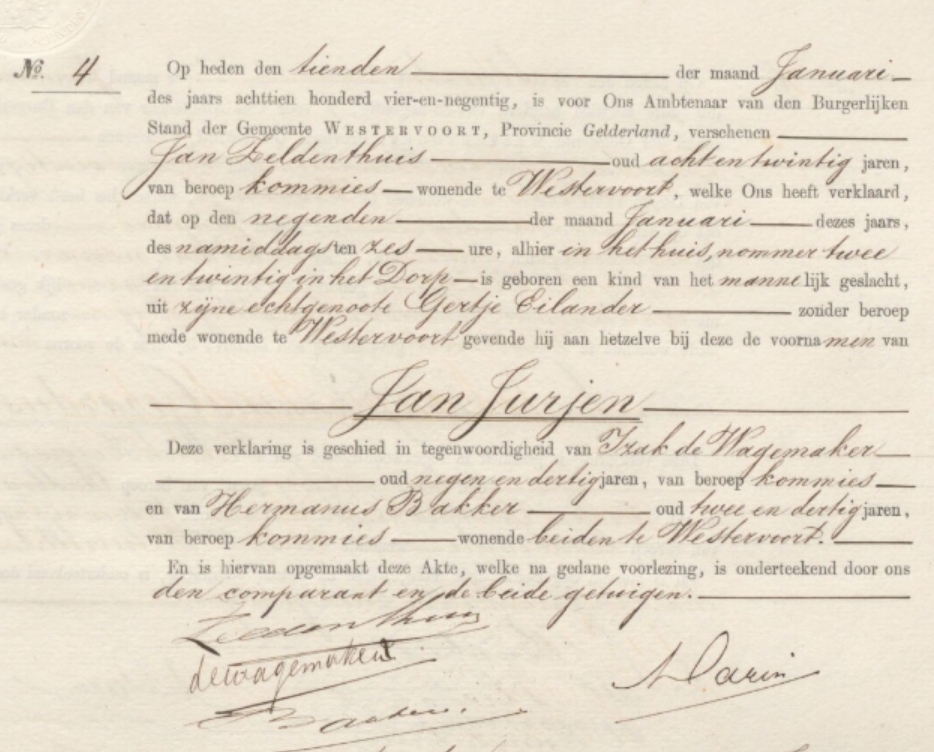 No. 4
Op heden den tienden der maand Januari
des jaars achttien honderd vier-en-negentig, is voor Ons Ambtenaar van den Burgerlijken
Stand der Gemeente WESTERVOORT, Provincie Gelderland, verschenen
Jan Zeldenthuis oud acht en twintig jaren,
van beroep kommies wonende te Westervoort, welke Ons heeft verklaard,
dat op den negenden der maand Januari dezes jaars,
des namiddags ten zes ure, alhier in het huis, nommer twee
en twintig in het Dorp is geboren een kind van het mannelijk geslacht,
uit zijne echtgenoote Gertje Eilander zonder beroep
mede wonende te Westervoort gevende hij aan hetzelve bij deze de voornamen van
Jan Jurjen
Deze verklaring is geschied in tegenwoordigheid van Izak de Wagemaker
oud negen en dertig jaren, van beroep kommies
en van Hermanus Bakker oud twee en dertig jaren,
van beroep kommies wonende beiden te Westervoort.
En is hiervan opgemaakt deze Akte, welke na gedane voorlezing, is onderteekend door ons
den comparant en de beide getuigen.
Zeldenthuis
de Wagemaker
Bakker.